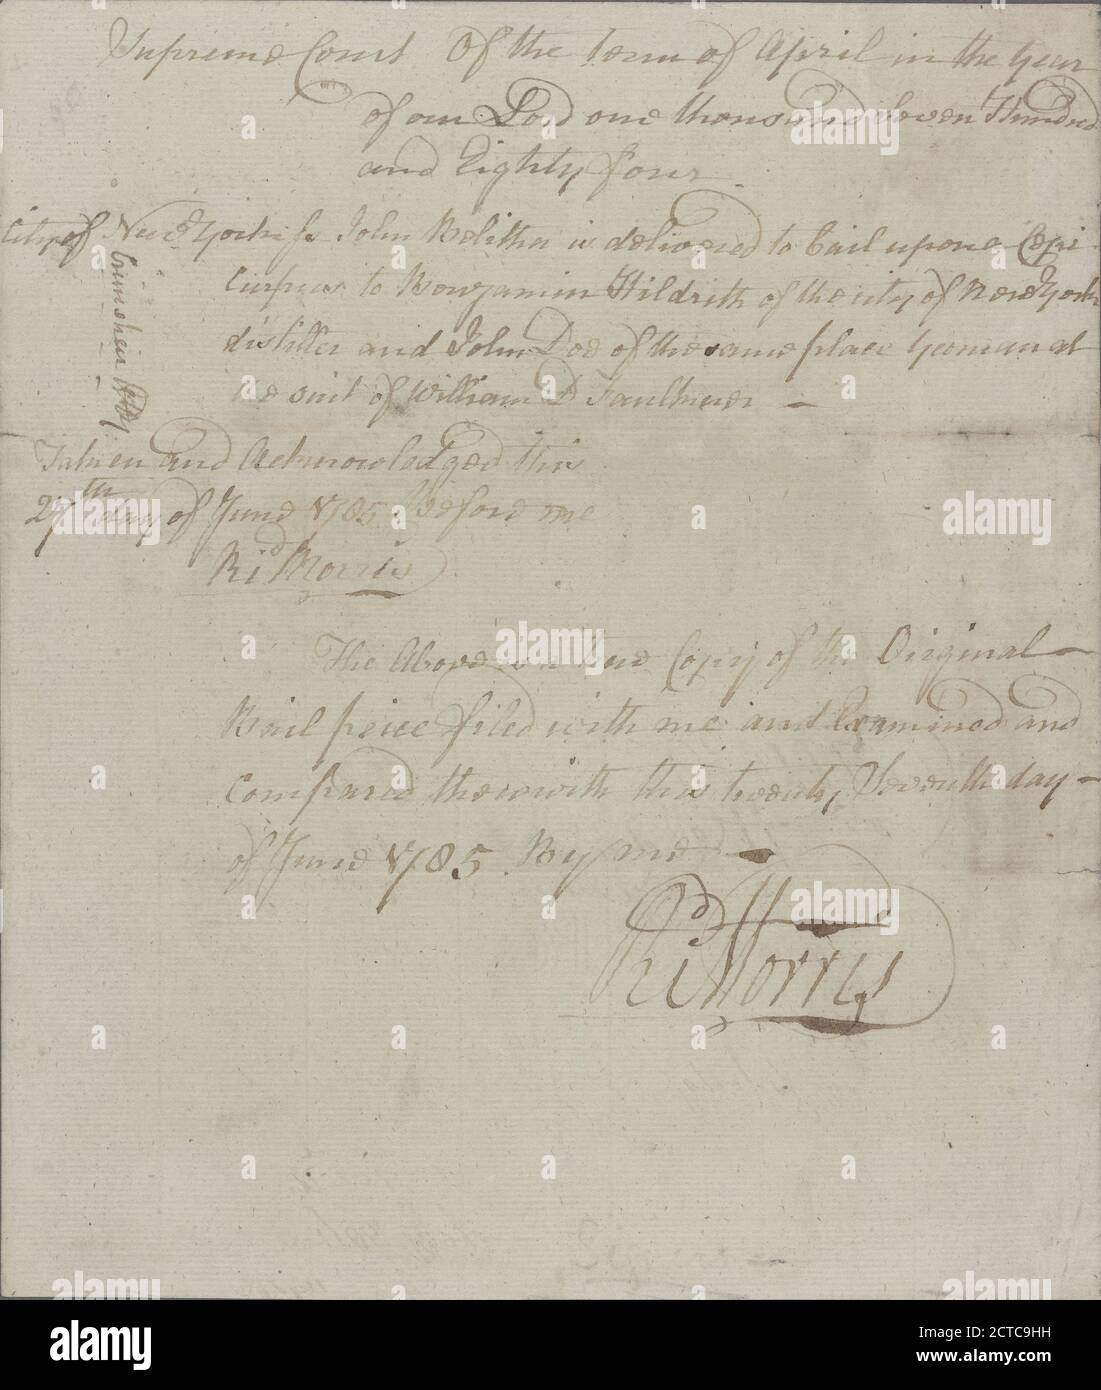 Supreme Court Of the term of April in the Year
of our Lord one thousand Seven Hundred
and Eighty four
City of New York ss John Belitha is delivered to bail upon a Cepi
Curpus to Bengamin Hildrith of the city of New York
distiller and John Doe of the same place Yeoman at
he suit of William D Faulkner —
Atty.
Taken and Acknowledged this
27th day of June 1785 Before me
Rid Morris
The Above is a true Copy of the Original —
Bail peice filed with me and Examined and
Compared therewith this twenty Seventh day —
of June 1785. By me —
Rid Morris
alamy
alamy
Image ID: 2CTC9HH
www.alamy.com